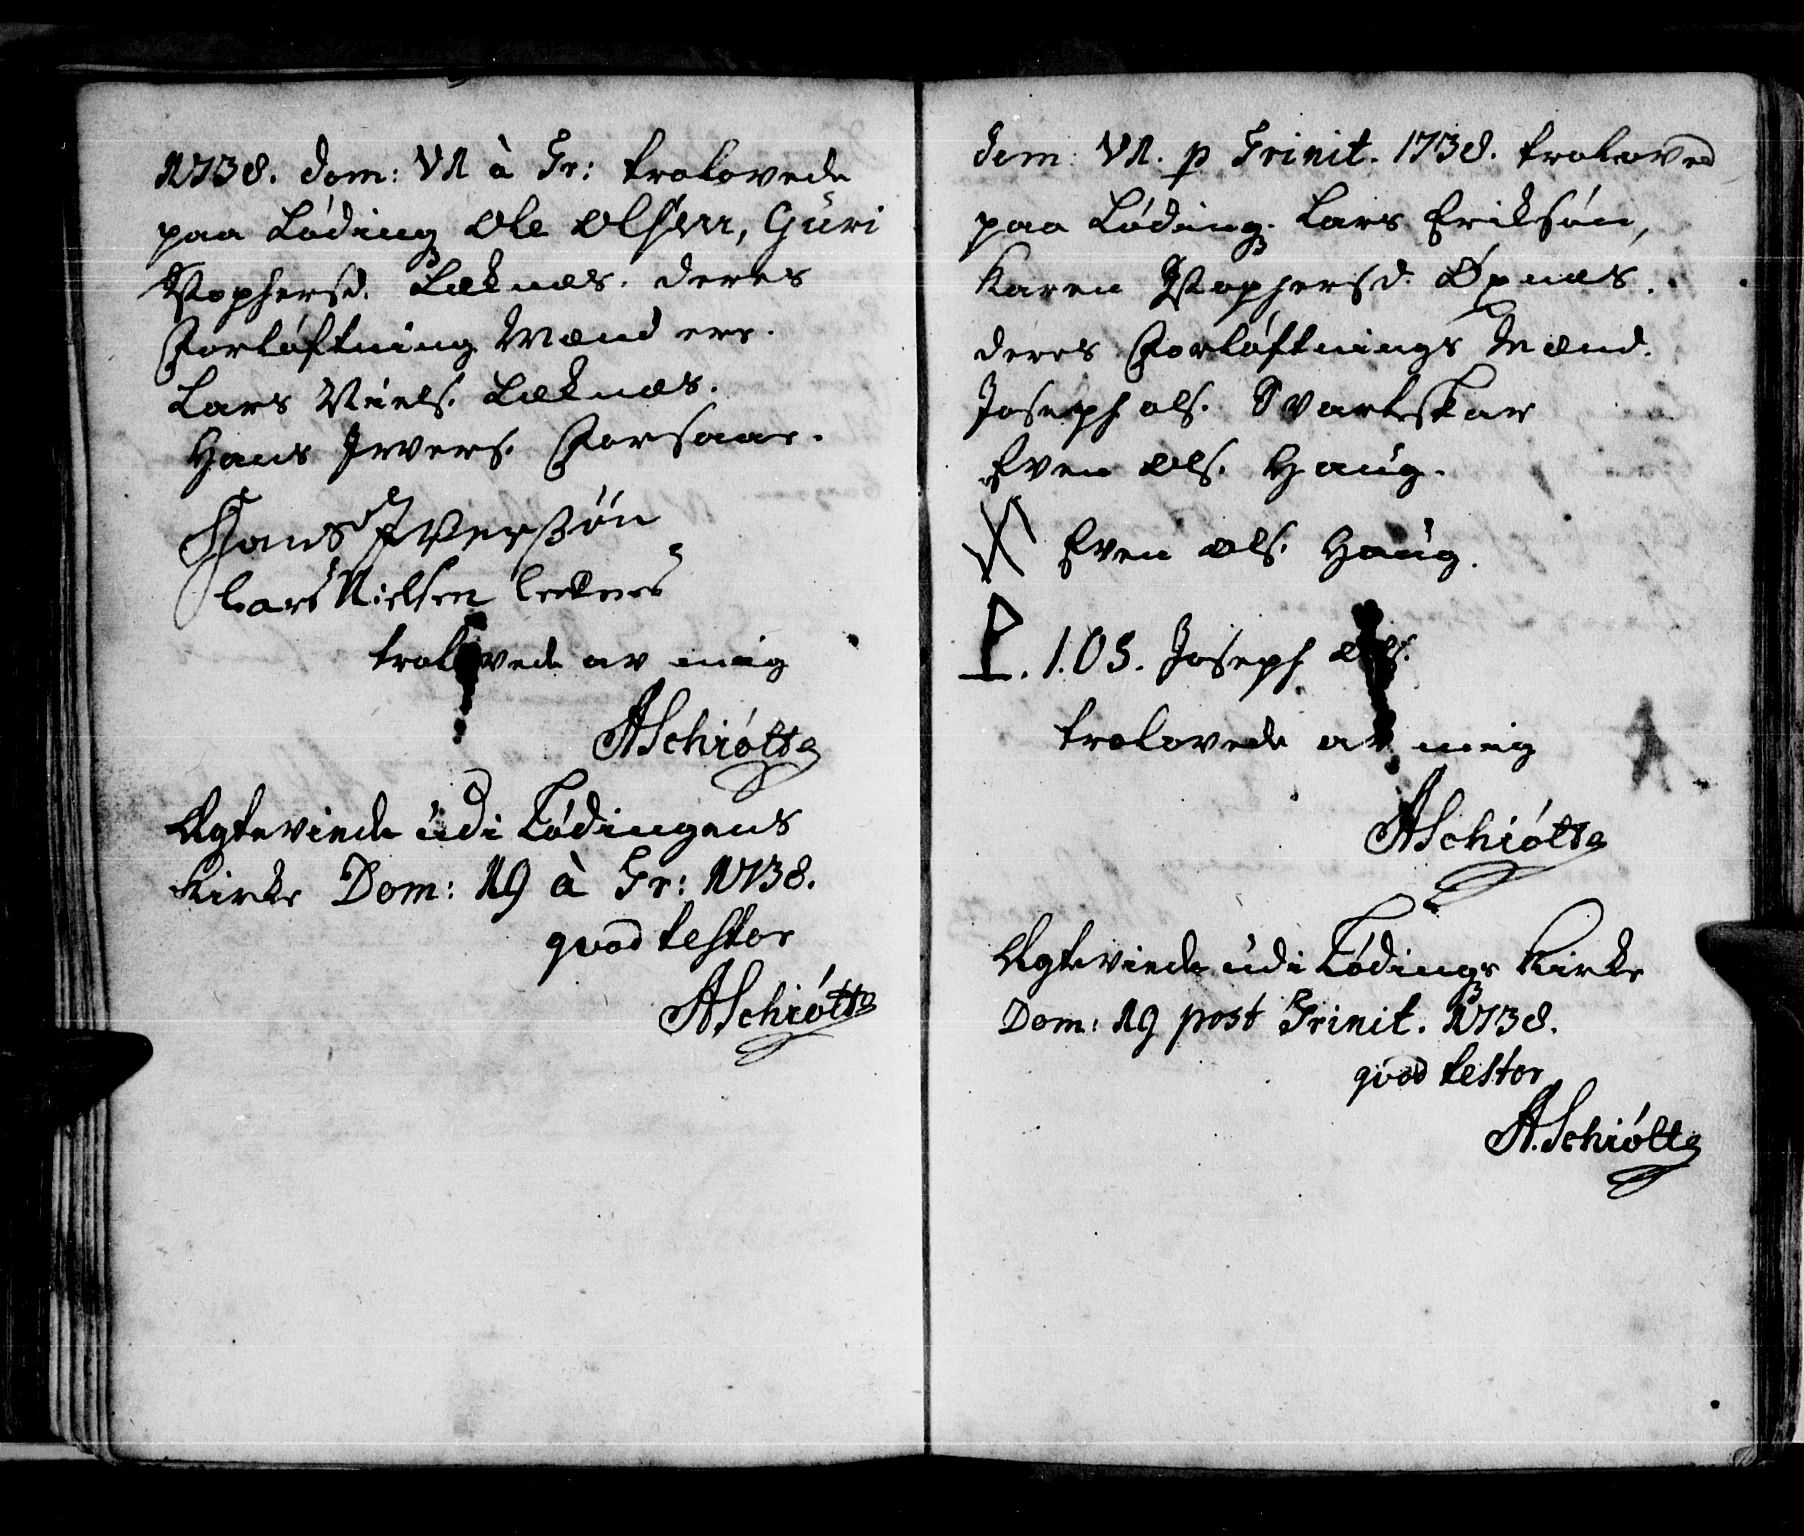 1738. Dom: VI à Tr: trolovede
paa Løding Ole Olsen, Guri
Tophersd. Leknæs. deres
Forløftning Mænd ere.
Lars Niels. Leknæs.
Hans Ivers. Forsaae.
Hans Iverßøn
Lars Nielsen Lecknes
trolovede av mig
ASchiøtte
Ægteviede udi Lødingens
Kirke Dom: 19 à Tr: 1738.
qvod testor
ASchiøtte
Dom: VI. p Trinit. 1738. troloved
paa Løding. Lars Eriksøn,
Karen Tophersd. Øxnæs.
deres Forløftnings Mænd.
Joseph ols. Svartskar
Even Ols. Haug.
Even Ols. Haug.
I.OS. Joseph Ols.
trolovede av mig
ASchiøtte
Ægteviede udi Lødings Kirke
Dom: 19 post Trinit. 1738.
qvod testor
A.Schiøtte